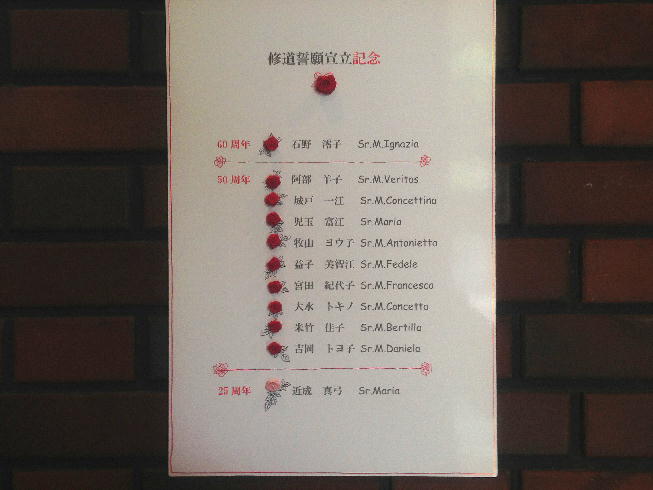 修道誓願宣立記念
60周年 石野 澪子 Sr.M.Ignazia
50周年 阿部 羊子 Sr.M.Veritas
城戸 一江 Sr.M.Concettina
児玉 富江 Sr.Maria
牧山 ヨウ子 Sr.M.Antonietta
益子 美智江 Sr.M.Fedele
宮田 紀代子 Sr.M.Francesca
大水 トキノ Sr.M.Concetta
米竹 佳子 Sr.M.Bertilla
吉岡 トヨ子 Sr.M.Daniela
25周年 近成 真弓 Sr.Maria